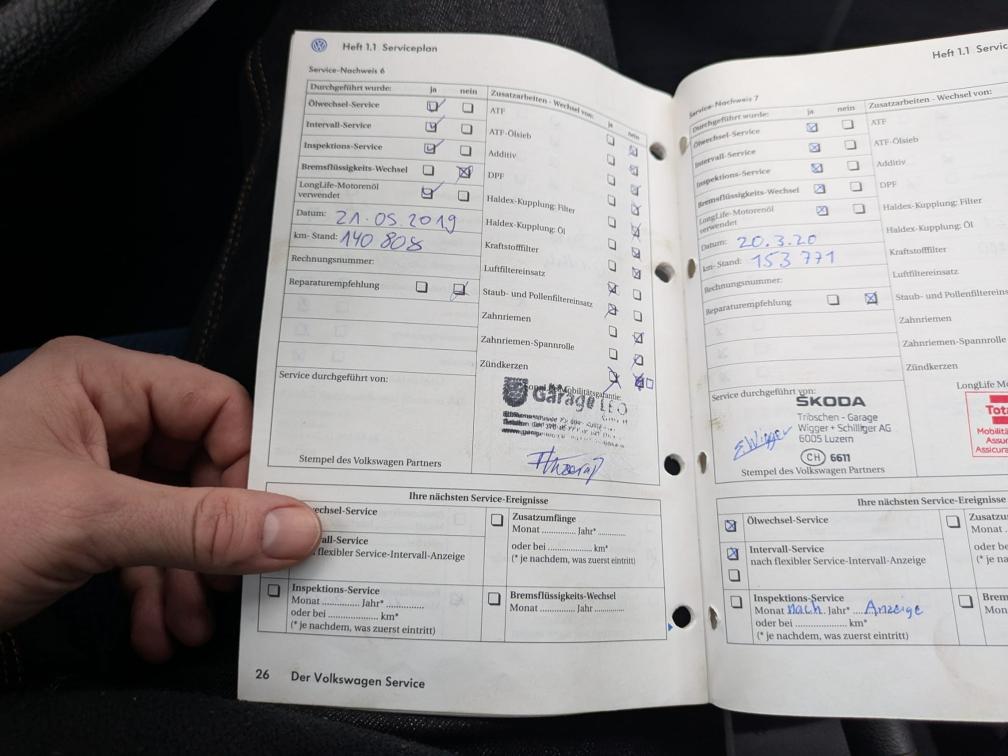 Heft 1.1 Serviceplan
Service-Nachweis 6
Durchgeführt wurde: ja nein
Ölwechsel-Service
Intervall-Service
Inspektions-Service
Bremsflüssigkeits-Wechsel
LongLife-Motorenöl
verwendet
Datum: 21.05.2019
km-Stand: 140 808
Rechnungsnummer:
Reparaturempfehlung
Zusatzarbeiten - Wechsel von: ja nein
ATF
ATF-Ölsieb
Additiv
DPF
Haldex-Kupplung: Filter
Haldex-Kupplung: Öl
Kraftstofffilter
Luftfiltereinsatz
Staub- und Pollenfiltereinsatz
Zahnriemen
Zahnriemen-Spannrolle
Zündkerzen
Service durchgeführt von:
Mobilitätsgarantie:
Garage LEO
Stempel des Volkswagen Partners
Ihre nächsten Service-Ereignisse
wechsel-Service
all-Service
flexibler Service-Intervall-Anzeige
Inspektions-Service
Monat ............. Jahr* .............
oder bei ................ km*
(* je nachdem, was zuerst eintritt)
Zusatzumfänge
Monat ............. Jahr* ............
oder bei ................ km*
(* je nachdem, was zuerst eintritt)
Bremsflüssigkeits-Wechsel
Monat ............. Jahr .............
26 Der Volkswagen Service
Heft 1.1 Servic
Service-Nachweis 7
Durchgeführt wurde: ja nein
Ölwechsel-Service
Intervall-Service
Inspektions-Service
Bremsflüssigkeits-Wechsel
LongLife-Motorenöl
verwendet
Datum: 20.3.20
km-Stand: 153 771
Rechnungsnummer:
Reparaturempfehlung
Zusatzarbeiten - Wechsel von:
ATF
ATF-Ölsieb
Additiv
DPF
Haldex-Kupplung: Filter
Haldex-Kupplung: Öl
Kraftstofffilter
Luftfiltereinsatz
Staub- und Pollenfiltereins
Zahnriemen
Zahnriemen-Spannrolle
Zündkerzen
Service durchgeführt von:
LongLife Mo
ŠKODA
Tribschen - Garage
Wigger + Schilliger AG
6005 Luzern
CH 6611
E. Wigger
Tota
Mobilitä
Assur
Assicura
Stempel des Volkswagen Partners
Ihre nächsten Service-Ereignisse
Ölwechsel-Service
Intervall-Service
nach flexibler Service-Intervall-Anzeige
Inspektions-Service
Monat nach Jahr* Anzeige
oder bei ................ km*
(* je nachdem, was zuerst eintritt)
Zusatzu
Monat .
oder be
(* je na
Brem
Mon